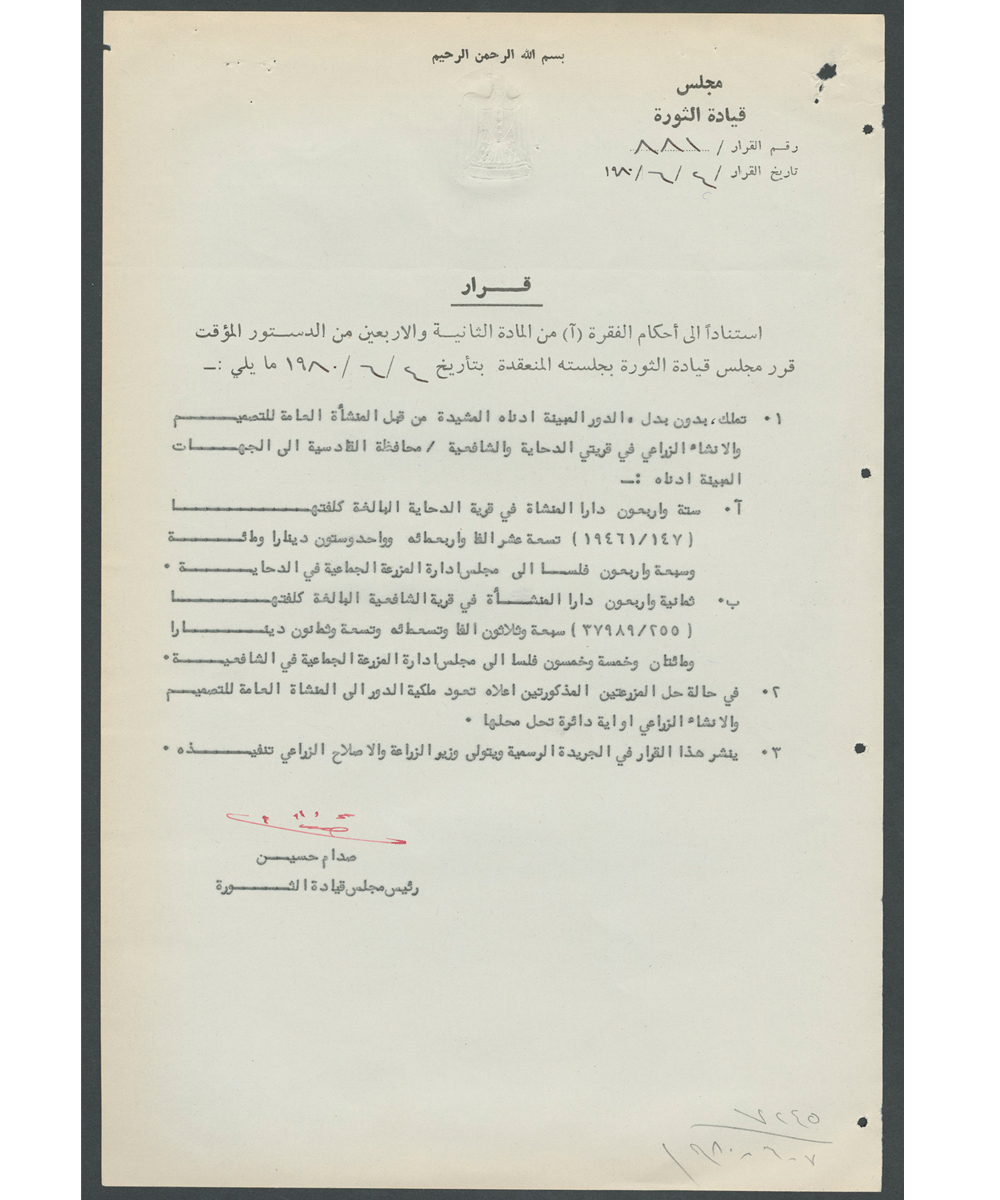 بسم الله الرحمن الرحيم
مجلس
قيادة الثورة
رقم القرار / ٨٨١
تاريخ القرار / ٤ / ٦ / ١٩٨٠
قـــرار
استناداً الى أحكام الفقرة (آ) من المادة الثانيـة والاربعين من الدستور المؤقت
قرر مجلس قيادة الثورة بجلسته المنعقدة بتأريخ ٤ / ٦ / ١٩٨٠ ما يلي :ـ
١٠ تملك، بدون بدل، الدور المبينة ادناه المشيدة من قبل المنشأة العامة للتصميــــم
والانشاء الزراعي في قريتي الدحاية والشافعية / محافظة القادسية الى الجهــــات
المبينة ادناه :ـ
آ٠ ستة واربعون دارا المنشاة في قرية الدحاية البالغة كلفتهــــــا
( ١٩٤٦١/١٤٧ ) تسعة عشر الفا واربعمائه وواحد وستون دينارا ومائــــة
وسبعة واربعون فلسـا الى مجلس ادارة المزرعة الجماعية في الدحايــــة ٠
ب٠ ثمانية واربعون دارا المنشــأة في قرية الشافعية البالغة كلفتهــــــا
( ٣٧٩٨٩/٢٥٥ ) سبعة وثلاثون الفا وتسعمائه وتسعة وثمانون دينــــارا
ومائتان وخمسة وخمسون فلسا الى مجلس ادارة المزرعة الجماعية في الشافعيـــة٠
٢٠ في حالة حل المزرعتين المذكورتين اعلاه تعود ملكية الدور الى المنشاة العامة للتصميــم
والانشاء الزراعي او اية دائرة تحل محلها ٠
٣٠ ينشر هذا القرار في الجريدة الرسمية ويتولى وزير الزراعة والاصلاح الزراعي تنفيــــذه ٠
صدام حسيـــن
رئيس مجلس قيادة الثــــورة